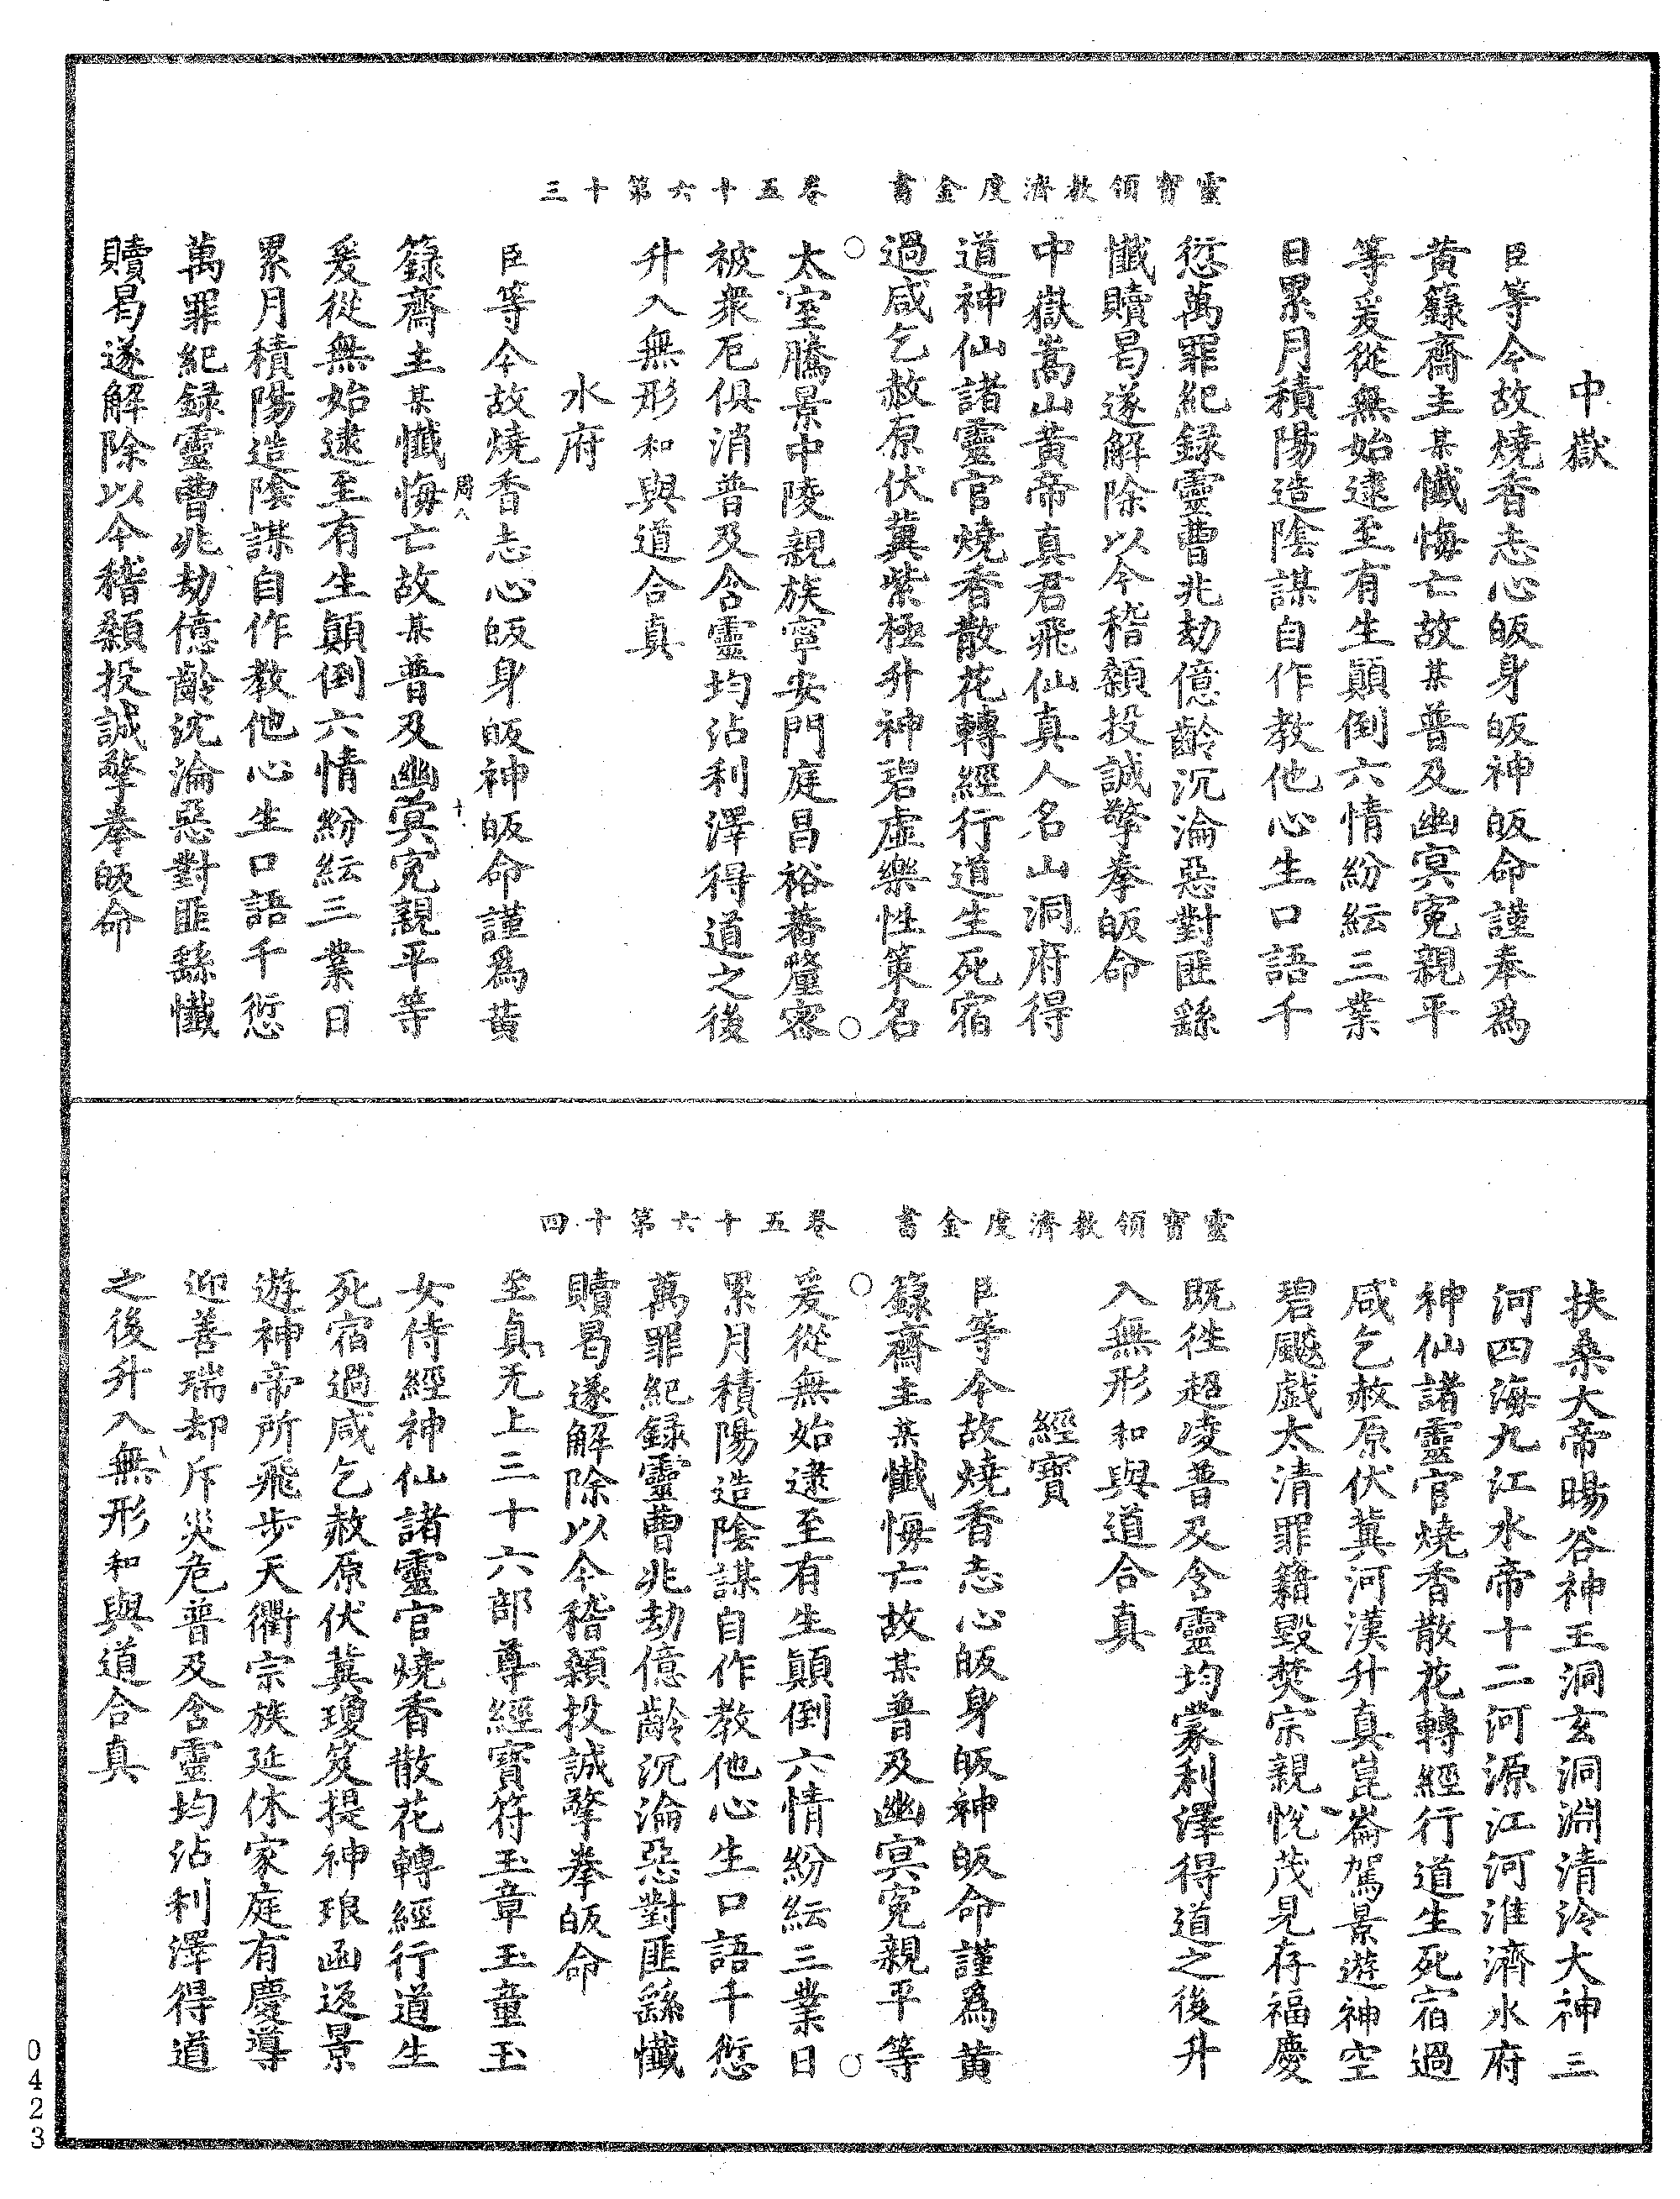 靈寶領教濟度金書　卷五十六第十三
中嶽
臣等今故燒香志心皈身皈神皈命謹奉爲
黃籙齋主某懺悔亡故某普及幽冥寃親平
等爰從無始逮至有生顛倒六情紛紜三業
日累月積陽造陰謀自作教他心生口語千
愆萬罪紀録靈曹兆劫億齡沉淪惡對匪繇
懺贖曷遂解除以今稽顙投誠擎拳皈命
中嶽嵩山黃帝真君飛仙真人名山洞府得
道神仙諸靈官燒香散花轉經行道生死宿
過咸乞赦原伏冀紫極升神碧虛樂性策名
太室騰景中陵親族寧安門庭昌裕蕃釐密
被衆厄俱消普及含靈均沾利澤得道之後
升入無形和與道合真
水府
臣等今故燒香志心皈身皈神皈命謹爲黃
籙齋主某懺悔亡故某普及幽冥寃親平等
爰從無始逮至有生顛倒六情紛紜三業日
累月積陽造陰謀自作教他心生口語千愆
萬罪紀録靈曹兆劫億齡沈淪惡對匪繇懺
贖曷遂解除以今稽顙投誠擎拳皈命
靈寶領教濟度金書　卷五十六第十四
扶桑大帝暘谷神王洞玄洞淵清泠大神三
河四海九江水帝十二河源江河淮濟水府
神仙諸靈官燒香散花轉經行道生死宿過
咸乞赦原伏冀河漢升真崑崙駕景遊神空
碧飈戲太清罪籍毀焚宗親悅茂見存福慶
既徃超凌普及含靈均蒙利澤得道之後升
入無形和與道合真
經寶
臣等今故燒香志心皈身皈神皈命謹爲黃
籙齋主某懺悔亡故某普及幽冥寃親平等
爰從無始逮至有生顛倒六情紛紜三業日
累月積陽造陰謀自作教他心生口語千愆
萬罪紀録靈曹兆劫億齡沉淪惡對匪繇懺
贖曷遂解除以今稽顙投誠擎拳皈命
至真无上三十六部尊經寶符玉章玉童玉
女侍經神仙諸靈官燒香散花轉經行道生
死宿過咸乞赦原伏冀瓊笈提神琅函返景
遊神帝所飛步天衢宗族延休家庭有慶導
迎善瑞却斥災危普及含靈均沾利澤得道
之後升入無形和與道合真
0423